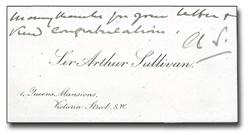 Many thanks for your letter &
kind congratulations.
A S.
Sir Arthur Sullivan.
1, Queens Mansions,
Victoria Street. S.W.